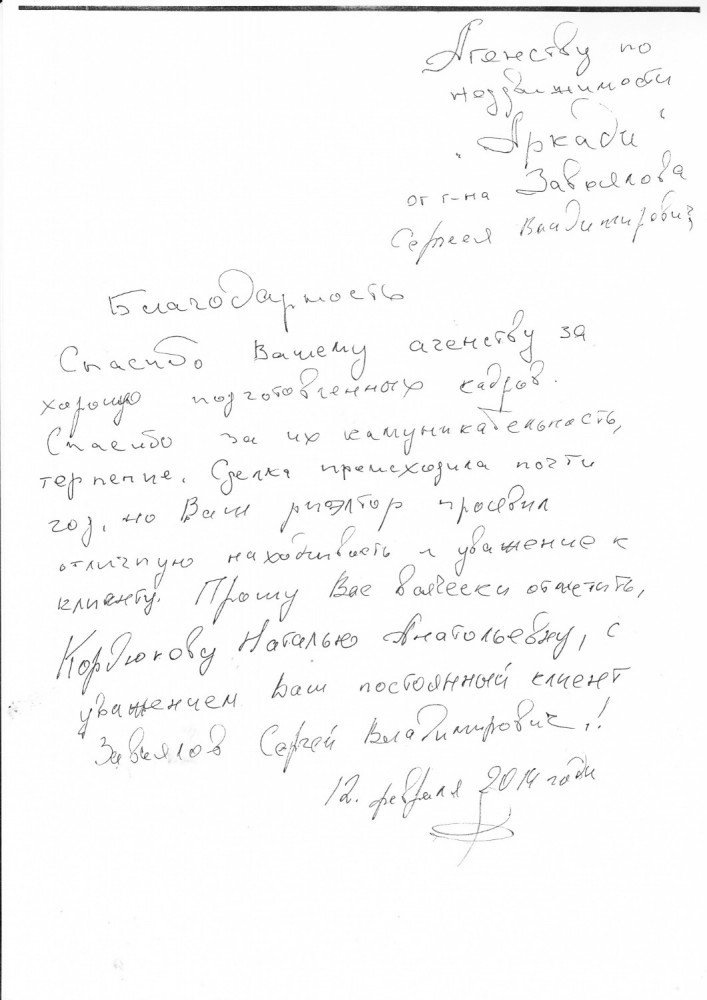 Агенству по
недвижимости
"Аркади"
от г-на Завьялова
Сергея Владимировича
Благодарность
Спасибо Вашему агенству за
хорошо подготовленных кадров.
Спасибо за их камуникательность,
терпение. Сделка происходила почти
год, но Ваш риэлтор проявил
отличную находчивость и уважение к
клиенту. Прошу Вас всячески отметить,
Кордюкову Наталью Анатольевну, с
уважением Ваш постоянный клиент
"Завьялов Сергей Владимирович"!
12. февраля 2014 года